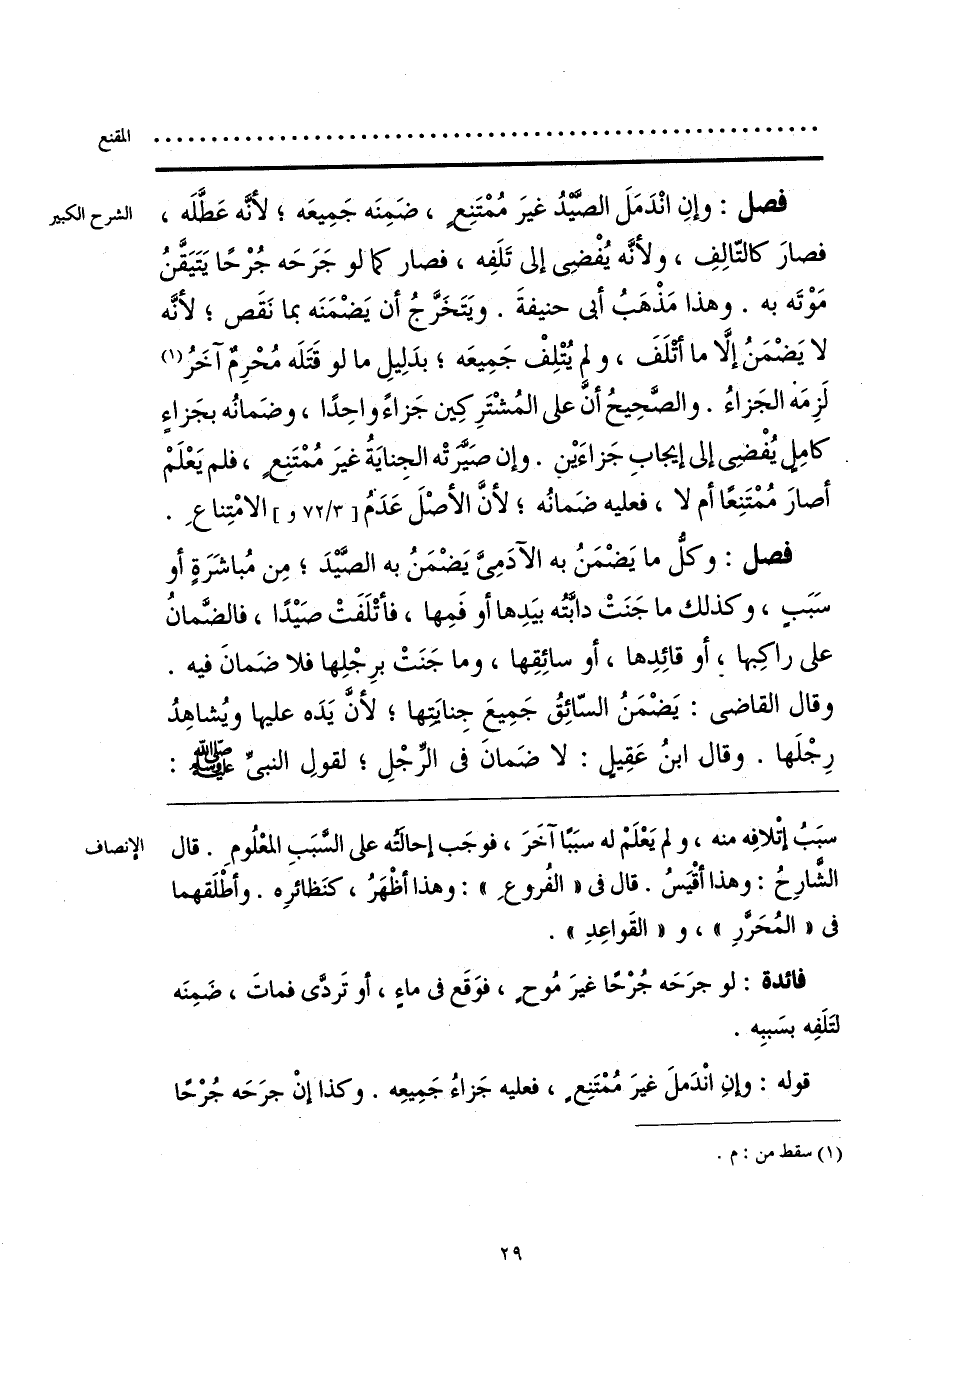 المقنع ........................................................
الشرح الكبير
فصل : وإنِ انْدَمَلَ الصَّيْدُ غيرَ مُمْتَنِعٍ ، ضَمِنَه جَمِيعَه ؛ لأنَّه عَطَّلَه ،
فصارَ كالتّالِفِ ، ولأنَّه يُفْضِى إلى تَلَفِه ، فصار كما لو جَرَحَه جُرْحًا يَتَيَقَّنُ
مَوْتَه به . وهذا مَذْهَبُ أبى حنيفةَ . ويَتَخَرَّجُ أن يَضْمَنَه بما نَقَص ؛ لأنَّه
لا يَضْمَنُ إلَّا ما أتْلَفَ ، ولم يُتْلِفْ جَمِيعَه ؛ بدَلِيلِ ما لو قَتَلَه مُحْرِمٌ آخَرُ(١)
لَزِمَه الجَزاءُ . والصَّحِيحُ أنَّ على المُشْتَرِكِين جَزاءً واحِدًا ، وضَمانُه بجَزاءٍ
كامِلٍ يُفْضِى إلى إيجابِ جَزاءَيْنِ . وإن صَيَّرَتْه الجِنايَةُ غيرَ مُمْتَنِعٍ ، فلم يَعْلَمْ
أصارَ مُمْتَنِعًا أم لا ، فعليه ضَمانُه ؛ لأنَّ الأصْلَ عَدَمُ [ ٧٢/٣ و ] الامْتِناعِ .
فصل : وكلُّ ما يَضْمَنُ به الآدَمِىَّ يَضْمَنُ به الصَّيْدَ ؛ مِن مُباشَرَةٍ أو
سَبَبٍ ، وكذلك ما جَنَتْ دابَّتُه بيَدِها أو فَمِها ، فأتْلَفَتْ صَيْدًا ، فالضَّمانُ
على راكِبِها ، أو قائِدِها ، أو سائِقِها ، وما جَنَتْ برِجْلِها فلا ضَمانَ فيه .
وقال القاضى : يَضْمَنُ السّائِقُ جَمِيعَ جِنايَتِها ؛ لأنَّ يَدَه عليها ويُشاهِدُ
رِجْلَها . وقال ابنُ عَقِيلٍ : لا ضَمانَ فى الرِّجْلِ ؛ لقولِ النبىِّ ﷺ :
الإنصاف
سبَبُ إتْلافِه منه ، ولم يَعْلَمْ له سبَبًا آخَرَ ، فوجَب إحالَتُه على السَّبَبِ المعْلُومِ . قال
الشَّارِحُ : وهذا أقْيَسُ . قال فى « الفُروعِ » : وهذا أظْهَرُ ، كنَظائرِه . وأطْلَقهما
فى « المُحَرَّرِ » ، و « القَواعِدِ » .
فائدة : لو جرَحَه جُرْحًا غيرَ مُوحٍ ، فوَقَع فى ماءٍ ، أو تَردَّى فماتَ ، ضَمِنَه
لتَلَفِه بسَببِه .
قوله : وإنِ انْدَملَ غيرَ مُمْتَنِعٍ ، فعليه جَزاءُ جَمِيعِه . وكذا إنْ جرَحَه جُرْحًا
(١) سقط من : م .
٢٩